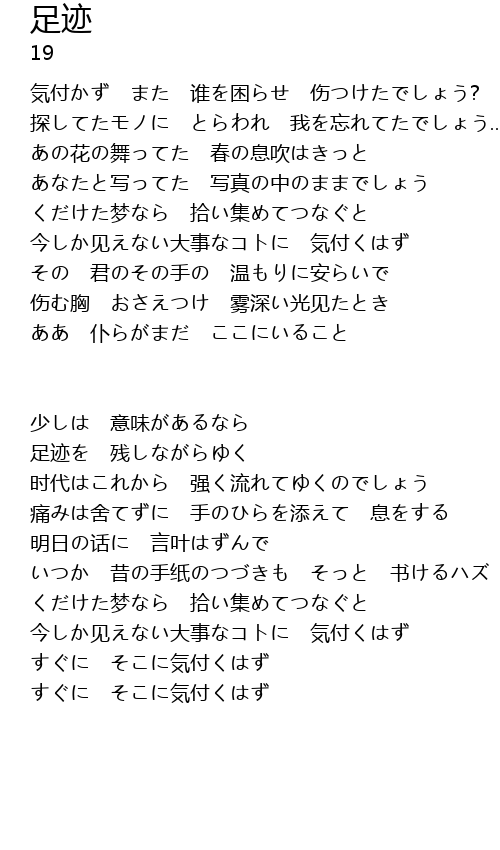 足迹
19
気付かず　また　谁を困らせ　伤つけたでしょう?
探してたモノに　とらわれ　我を忘れてたでしょう...
あの花の舞ってた　春の息吹はきっと
あなたと写ってた　写真の中のままでしょう
くだけた梦なら　拾い集めてつなぐと
今しか见えない大事なコトに　気付くはず
その　君のその手の　温もりに安らいで
伤む胸　おさえつけ　雾深い光见たとき
ああ　仆らがまだ　ここにいること
少しは　意味があるなら
足迹を　残しながらゆく
时代はこれから　强く流れてゆくのでしょう
痛みは舍てずに　手のひらを添えて　息をする
明日の话に　言叶はずんで
いつか　昔の手纸のつづきも　そっと　书けるハズ
くだけた梦なら　拾い集めてつなぐと
今しか见えない大事なコトに　気付くはず
すぐに　そこに気付くはず
すぐに　そこに気付くはず